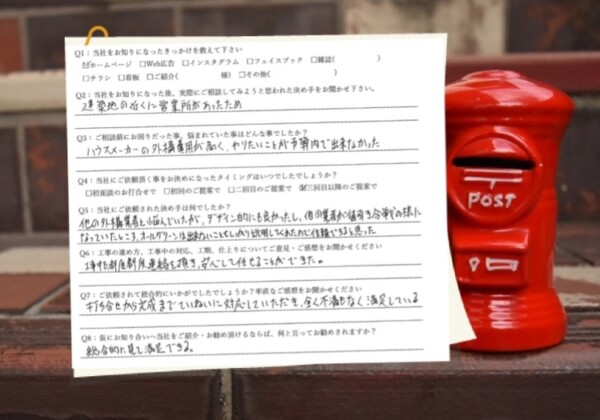 Q1：当社をお知りになったきっかけを教えて下さい
☑ホームページ □Web広告 □インスタグラム □フェイスブック □雑誌( )
□チラシ □看板 □ご紹介( 様) □その他( )
Q2：当社をお知りになった後、実際にご相談してみようと思われた決め手をお聞かせ下さい。
建築地の近くに営業所があったため
Q3：ご相談前にお困りだった事、悩まれていた事はどんな事でしたか？
ハウスメーカーの外構費用が高く、やりたいことが予算内で出来なかった
Q4：当社にご依頼頂く事をお決めになったタイミングはいつでしたでしょうか？
□初面談のお打合せで □初回のご提案で □二回目のご提案で ☑三回目以降のご提案で
Q5：当社に依頼された決め手は何でしたか？
他の外構業者と悩んでいたが、デザイン的にも良かったし、他の業者が値引き合戦の様に
なっていたところ、オールグリーンは出来ないこともしっかり説明してくれたので信頼できると思った
Q6：工事の進め方、工事中の対応、工期、仕上りについてご意見・ご感想をお聞かせください
工事も都度都度連絡を頂き、安心して任せることができた。
Q7：ご依頼されて総合的にいかがでしたでしょうか？率直なご感想をお聞かせください
打ち合せから完成までていねいに対応していただき、全く不満もなく満足している
Q8：仮にお知り合いへ当社をご紹介・お勧め頂けるならば、何と言ってお勧めされますか？
総合的に見て満足できる。
〒
POST